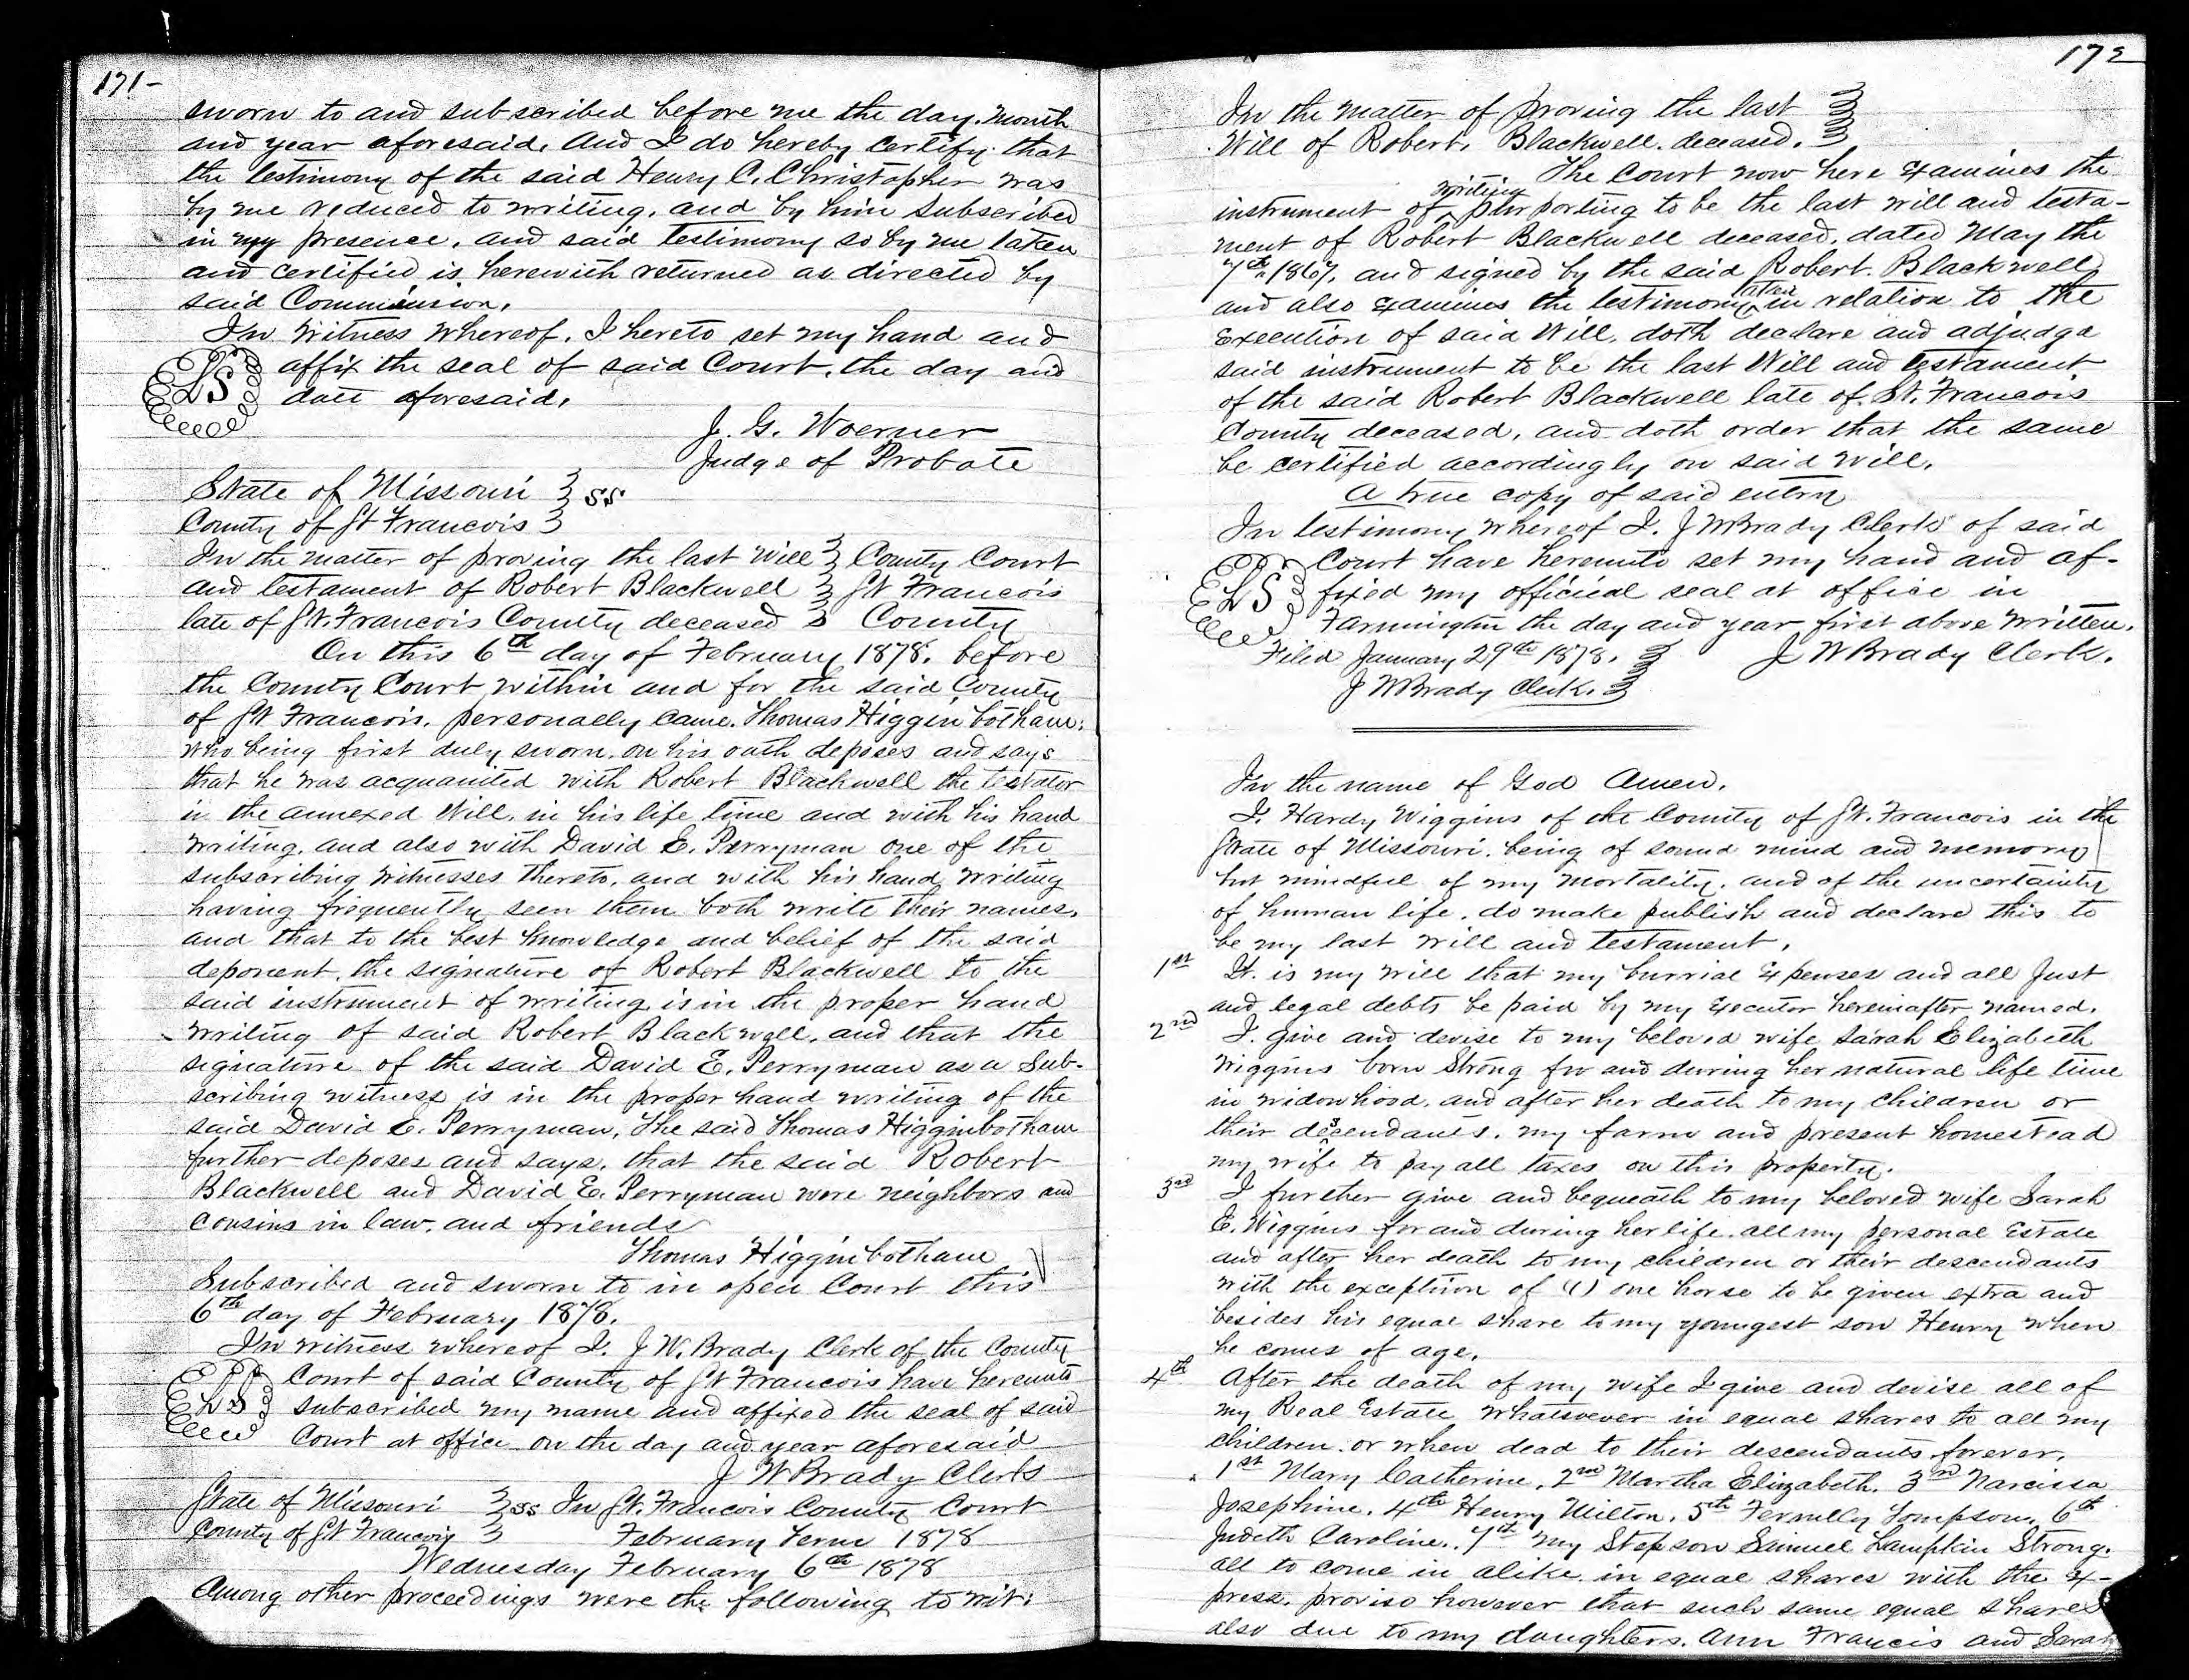 171-
sworn to and subscribed before me the day. month
and year aforesaid. And I do hereby certify that
the testimony of the said Henry C. Christopher was
by me reduced to writing, and by him subscribed
in my presence, and said testimony so by me taken
and certified is herewith returned as directed by
said Commission.
In Witness whereof, I hereto set my hand and
affix the seal of said Court, the day and
LS date aforesaid.
J. G. Woerner
Judge of Probate
State of Missouri } ss
County of St Francois }
In the matter of proving the last will } County Court
and testament of Robert Blackwell } St Francois
late of St. Francois County deceased } County
On this 6th day of February 1878. before
the County Court within and for the said County
of St Francois, personally came. Thomas Higginbotham.
who being first duly sworn. on his oath deposes and says
that he was acquainted with Robert Blackwell the testator
in the annexed Will, in his life time and with his hand
writing, and also with David E. Perryman one of the
subscribing witnesses thereto, and with his hand writing
having frequently seen them both write their names,
and that to the best knowledge and belief of the said
deponent, the signature of Robert Blackwell to the
said instrument of writing is in the proper hand
writing of said Robert Blackwell, and that the
signature of the said David E. Perryman as a sub-
scribing witness is in the proper hand writing of the
said David E. Perryman, The said Thomas Higginbotham
further deposes and says, that the said Robert
Blackwell and David E. Perryman were neighbors and
cousins in law. and friends
Thomas Higginbotham
Subscribed and sworn to in open Court this
6th day of February 1878.
In witness whereof I. J W. Brady Clerk of the County
Court of said County of St Francois have hereunto
LS subscribed my name and affixed the seal of said
Court at office on the day and year aforesaid
J W Brady Clerk
State of Missouri } ss In St. Francois County Court
County of St Francois } February Term 1878
Wednesday February 6th 1878
Among other proceedings were the following to wit:
172
In the matter of proving the last }
Will of Robert. Blackwell. deceased. }
The Court now here examines the
writing
instrument of ^ purporting to be the last will and testa-
ment of Robert Blackwell deceased. dated May the
7th 1867, and signed by the said Robert Blackwell
and also examines the testimony ^ in relation to the
execution of said Will, doth declare and adjudge
said instrument to be the last Will and testament
of the said Robert Blackwell late of St. Francois
County deceased, and doth order that the same
be certified accordingly on said will.
A true copy of said entry
In testimony whereof I. J W Brady Clerk of said
Court have hereunto set my hand and af-
LS fixed my official seal at office in
Farmington the day and year first above written.
Filed January 29th 1878. } J W Brady Clerk.
J W Brady Clerk. }
In the name of God Amen.
I. Hardy Wiggins of the County of St. Francois in the
State of Missouri. being of sound mind and memory
but mindful of my mortality, and of the uncertainty
of human life, do make publish and declare this to
be my last will and testament.
1st It. is my will that my burrial expenses and all Just
and legal debts be paid by my executor hereinafter named.
2nd I. give and devise to my beloved wife Sarah Elizabeth
Wiggins born Strong for and during her natural life time
in widowhood, and after her death to my children or
their descendants. my farm and present homestead
my wife to pay all taxes on this property.
3rd I further give and bequeath to my beloved wife Sarah
E. Wiggins for and during her life. all my personal Estate
and after her death to my children or their descendants
with the exception of (1) one horse to be given extra and
besides his equal share to my youngest son Henry when
he comes of age.
4th After the death of my wife I give and devise all of
my Real Estate whatsoever in equal shares to all my
children. or when dead to their descendants forever.
1st Mary Catherine, 2nd Martha Elizabeth. 3rd Narcissa
Josephine. 4th Henry Milton. 5th Tompson. 6th
Judith Caroline. 7th my Stepson Samuel Lampkin Strong.
all to come in alike in equal shares with the ex-
press, proviso however that such same equal share
also due to my daughters. Ann Francis and Sarah